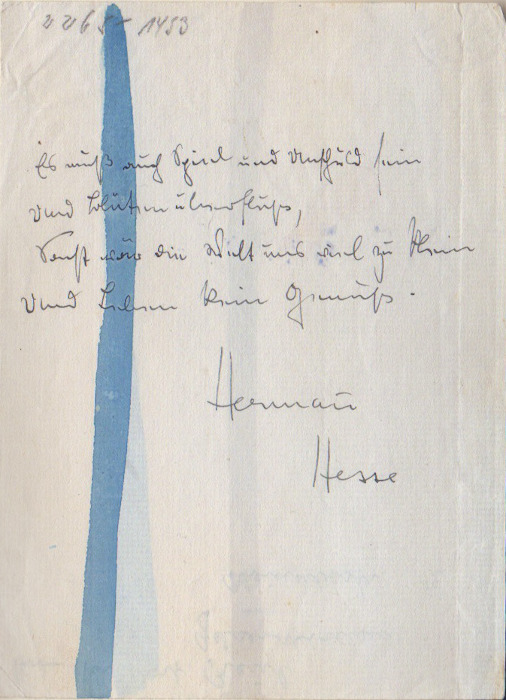 2265-1453
Es muß auch Spiel und Unschuld sein
Und Blütenüberfluß,
Sonst wär die Welt uns viel zu klein
Und Leben kein Genuß.
Hermann
Hesse